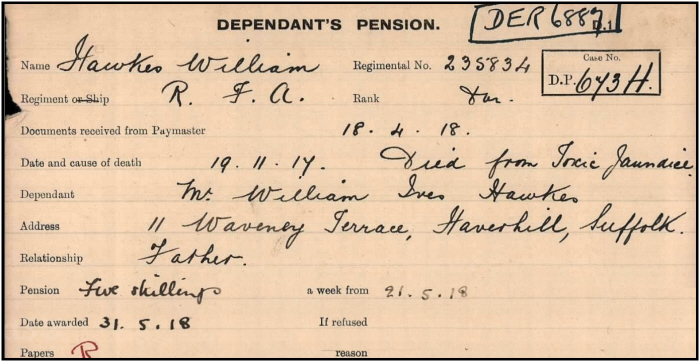 DEPENDANT'S PENSION.
DER 6887
D.1
Name Hawkes William Regimental No. 235834
Case No.
D.P. 673H.
Regiment or Ship R. F. A. Rank Dvr.
Documents received from Paymaster 18. 4. 18.
Date and cause of death 19. 11. 17. Died from Toxic Jaundice
Dependant Mr. William Ives Hawkes
Address 11 Waveney Terrace, Haverhill, Suffolk.
Relationship Father.
Pension Five shillings a week from 21. 5. 18
Date awarded 31. 5. 18 If refused
Papers R reason